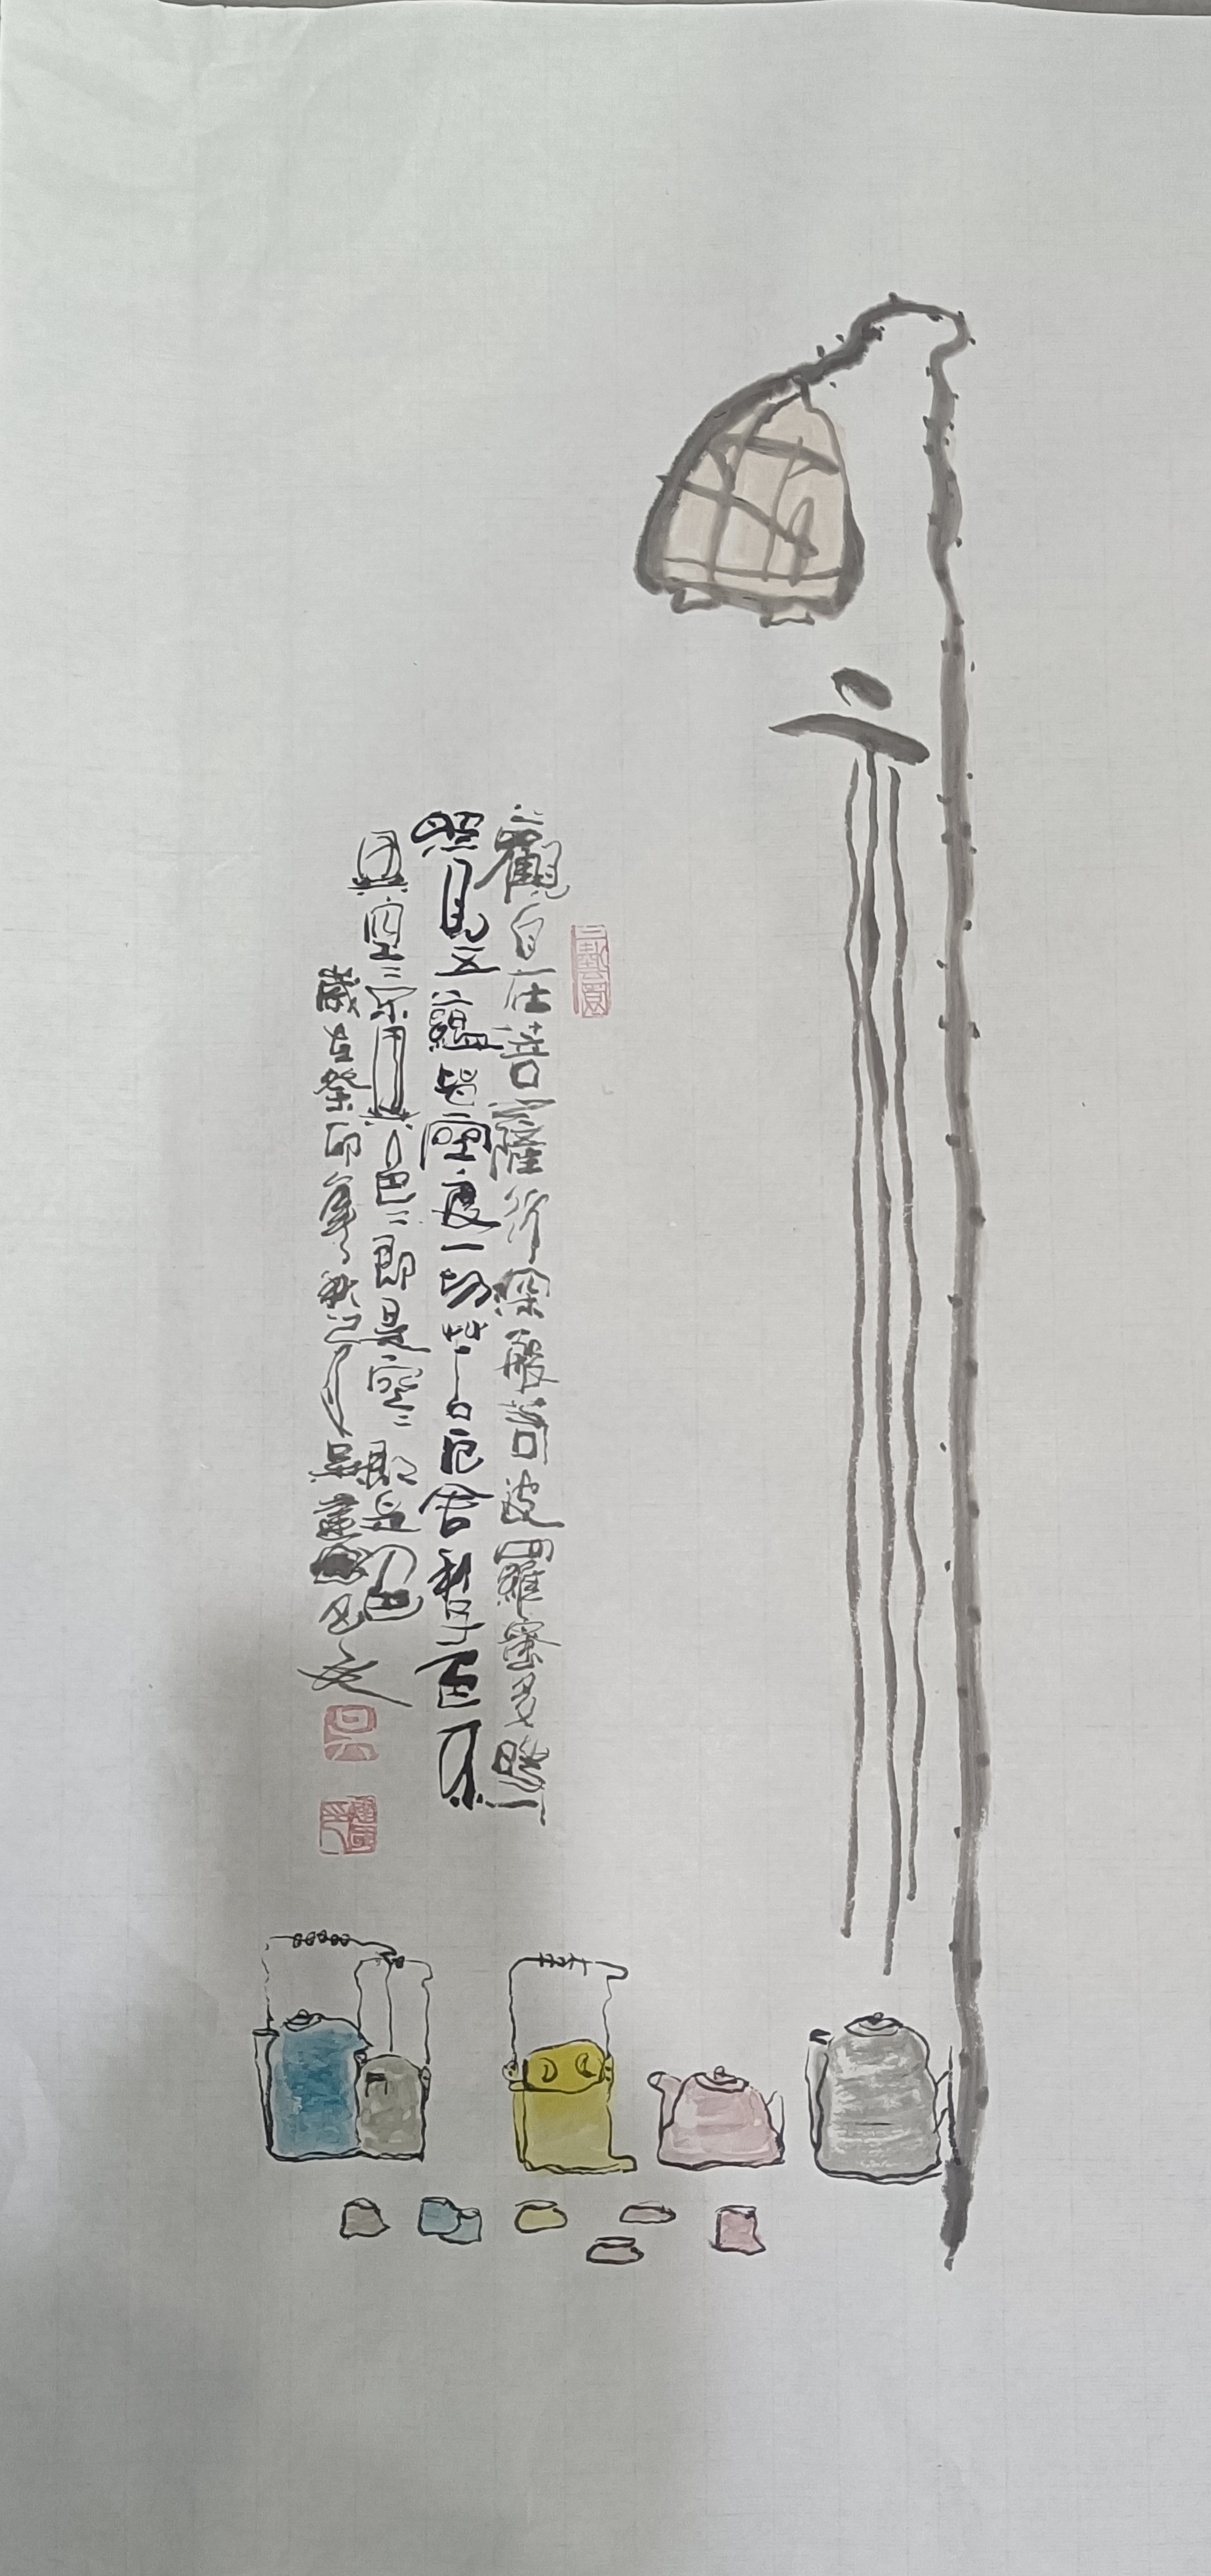 觀自在菩薩行深般若波羅蜜多時
照見五蘊皆空度一切苦厄舍利子色不
異空〻不異色〻即是空〻即是色
歲在癸卯年秋月